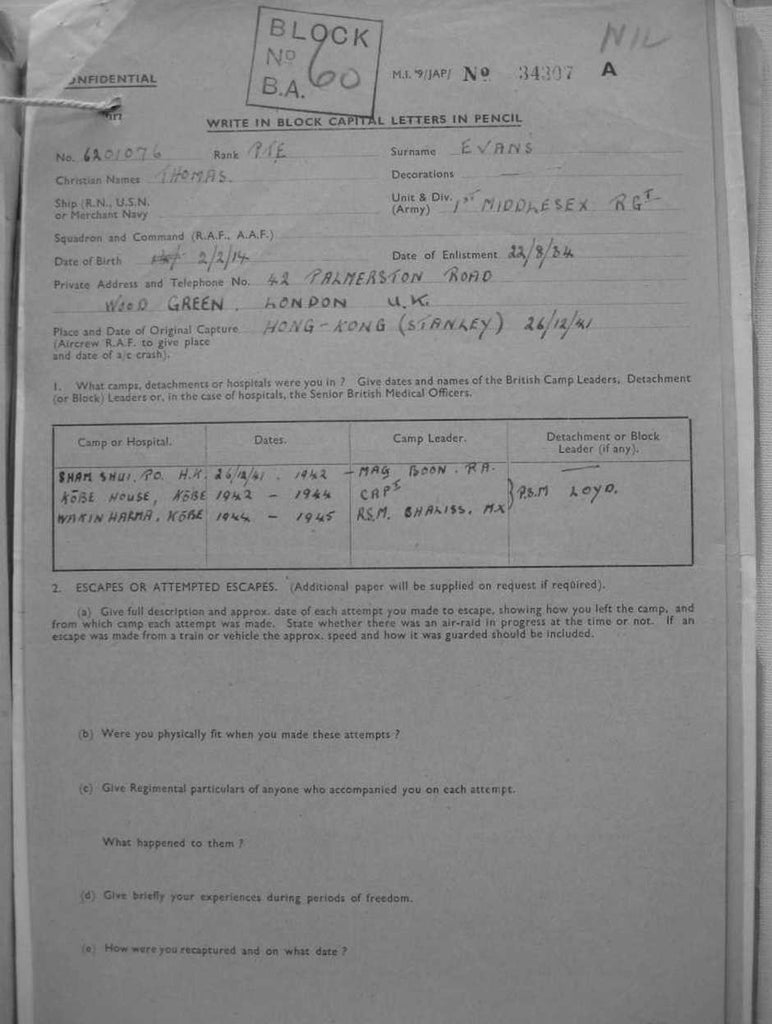 BLOCK
No 60
B.A.
NIL
ONFIDENTIAL
M.I. 9/JAP/ No 34307 A
WRITE IN BLOCK CAPITAL LETTERS IN PENCIL
No. 6201076 Rank PTE Surname EVANS
Christian Names THOMAS. Decorations
Ship (R.N., U.S.N. or Merchant Navy
Unit & Div. (Army) 1ST MIDDLESEX RGT
Squadron and Command (R.A.F., A.A.F.)
Date of Birth 2/2/14 Date of Enlistment 22/8/34
Private Address and Telephone No. 42 PALMERSTON ROAD
WOOD GREEN. LONDON U.K.
Place and Date of Original Capture HONG-KONG (STANLEY) 26/12/41
(Aircrew R.A.F. to give place
and date of a/c crash).
1. What camps, detachments or hospitals were you in ? Give dates and names of the British Camp Leaders, Detachment
(or Block) Leaders or, in the case of hospitals, the Senior British Medical Officers.
Camp or Hospital. Dates. Camp Leader. Detachment or Block Leader (if any).
SHAM SHUI. PO. H.K. 26/12/41. 1942 - MAG BOON. RA. —
KOBE HOUSE, KOBE 1942 - 1944 CAPT R.S.M LOYD.
WAKINHARMA, KOBE 1944 - 1945 R.S.M. MX
2. ESCAPES OR ATTEMPTED ESCAPES. (Additional paper will be supplied on request if required).
(a) Give full description and approx. date of each attempt you made to escape, showing how you left the camp, and
from which camp each attempt was made. State whether there was an air-raid in progress at the time or not. If an
escape was made from a train or vehicle the approx. speed and how it was guarded should be included.
(b) Were you physically fit when you made these attempts ?
(c) Give Regimental particulars of anyone who accompanied you on each attempt.
What happened to them ?
(d) Give briefly your experiences during periods of freedom.
(e) How were you recaptured and on what date ?